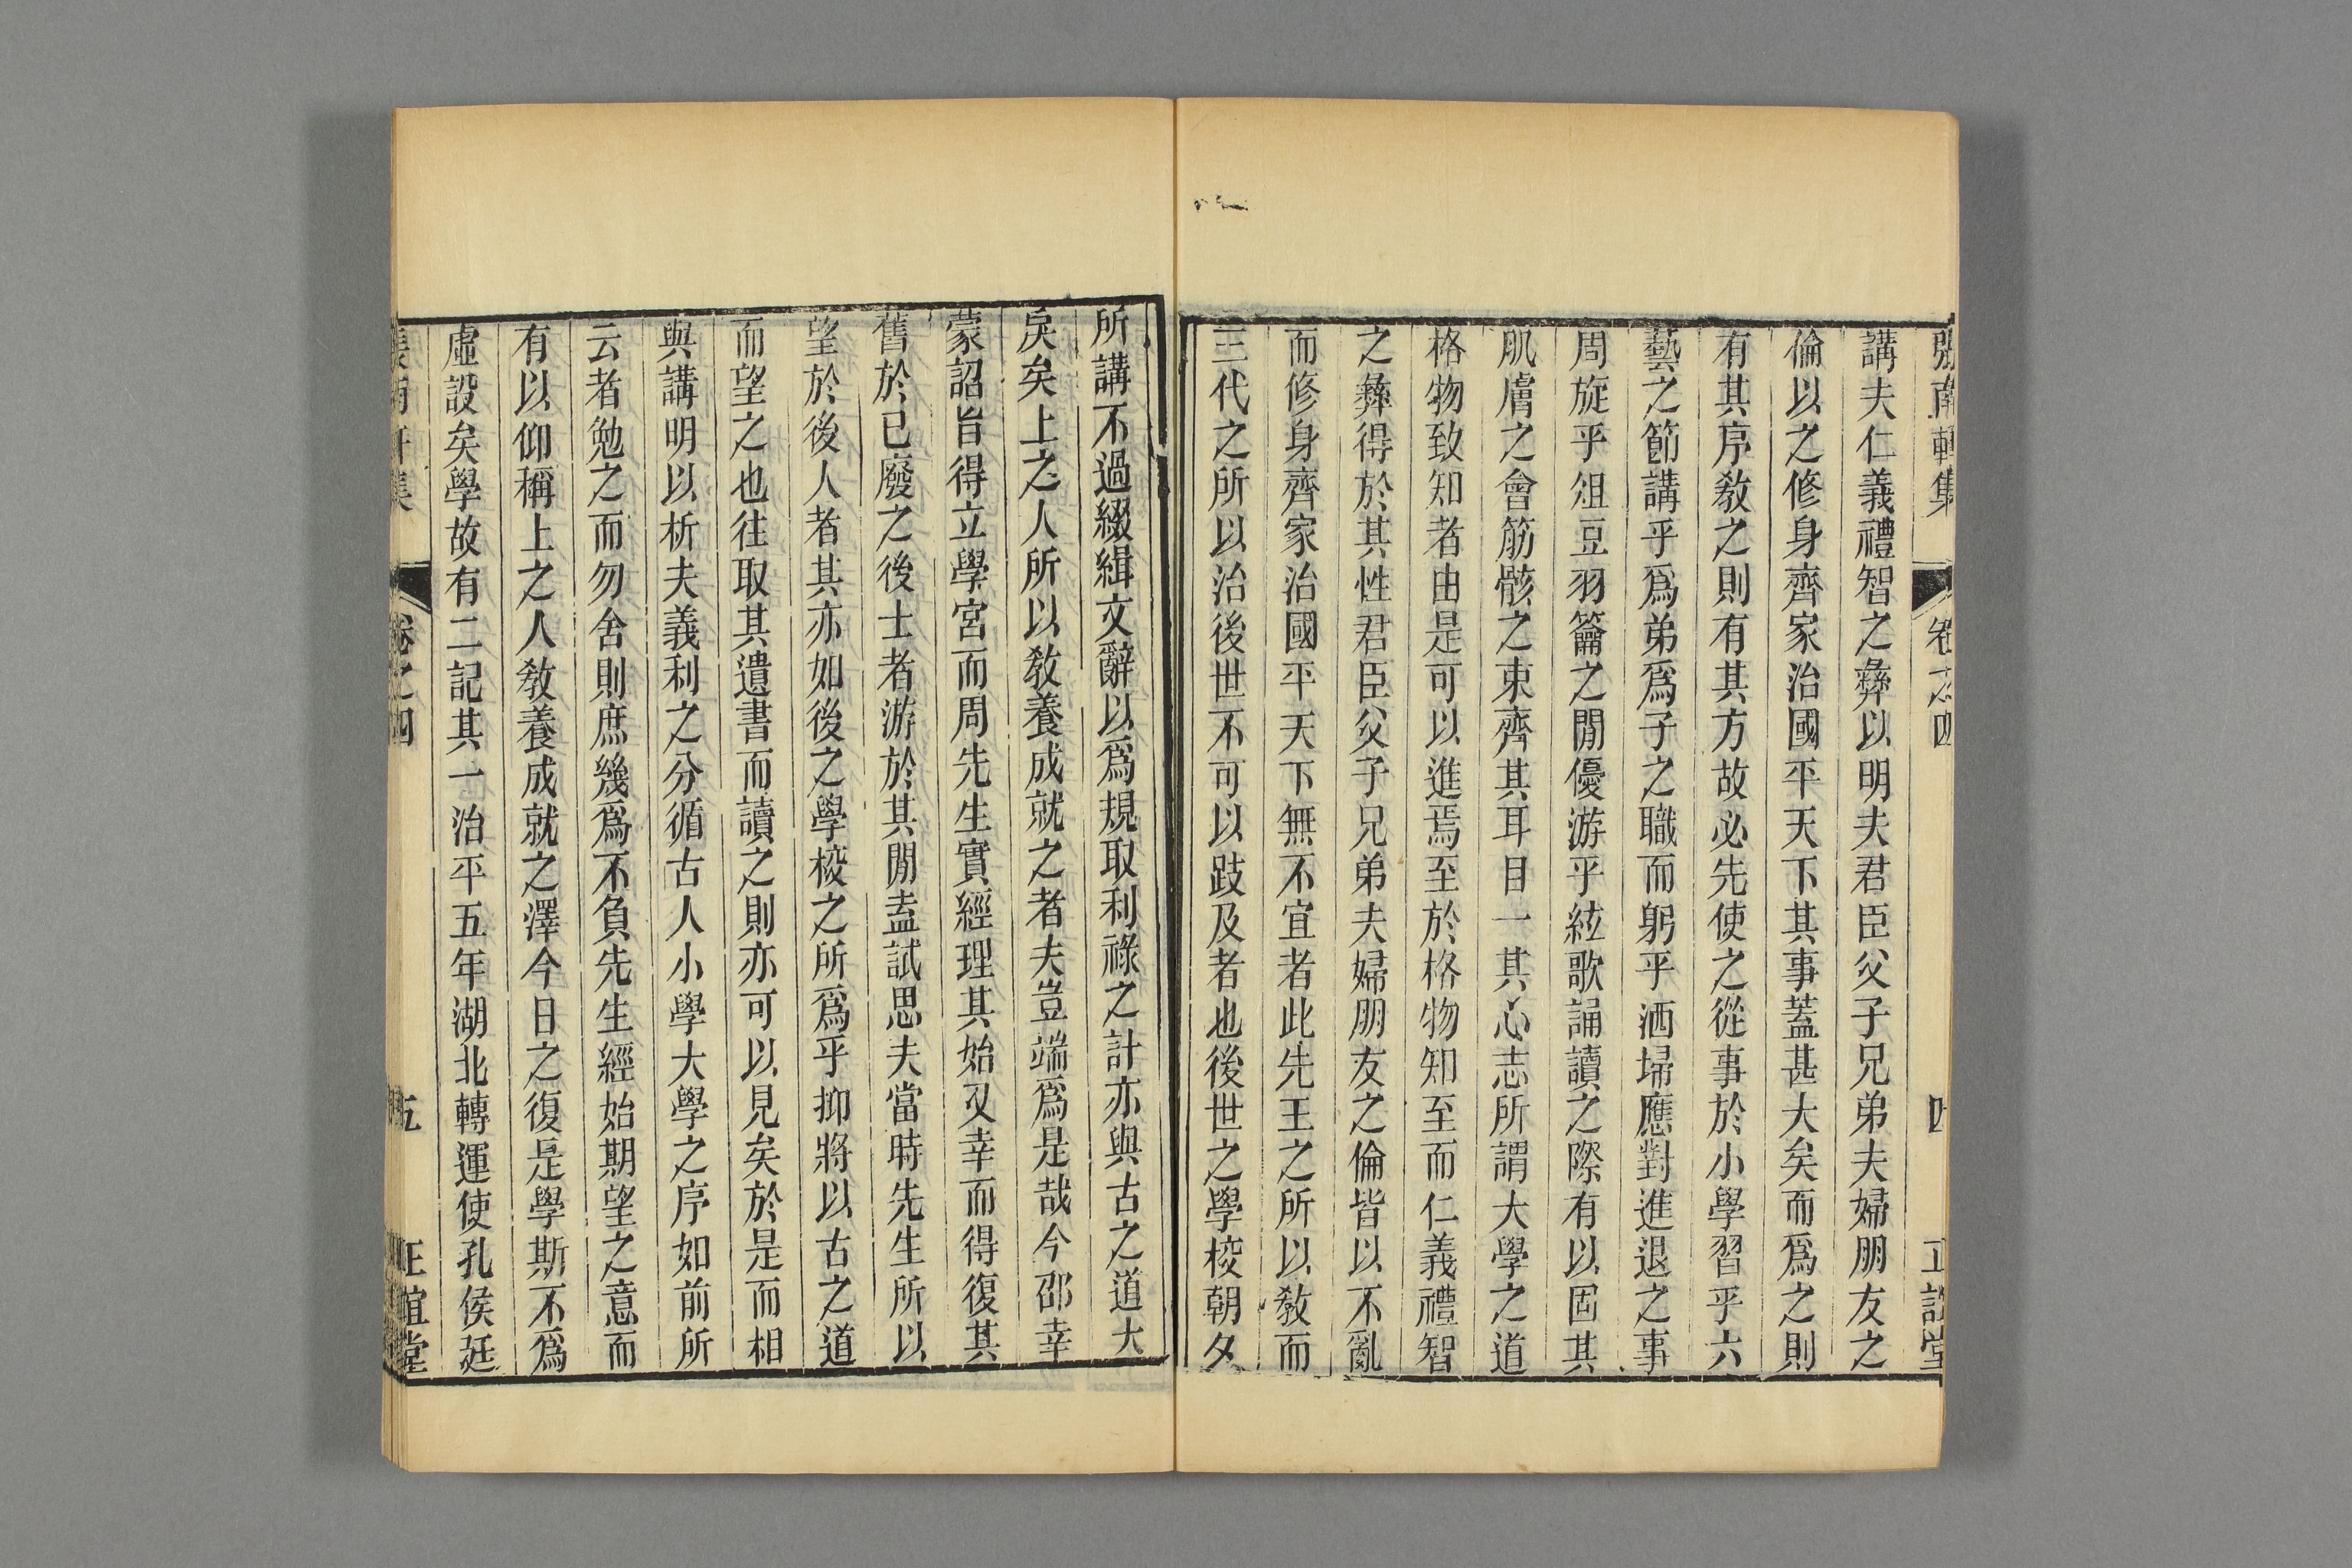 張南軒集 卷之四 四 正誼堂
講夫仁義禮智之彝以明夫君臣父子兄弟夫婦朋友之
倫以之修身齊家治國平天下其事蓋甚大矣而爲之則
有其序敎之則有其方故必先使之從事於小學習乎六
藝之節講乎爲弟爲子之職而躬乎洒埽應對進退之事
周旋乎俎豆羽籥之閒優游乎絃歌誦讀之際有以固其
肌膚之會筋骸之束齊其耳目一其心志所謂大學之道
格物致知者由是可以進焉至於格物知至而仁義禮智
之彝得於其性君臣父子兄弟夫婦朋友之倫皆以不亂
而修身齊家治國平天下無不宜者此先王之所以敎而
三代之所以治後世不可以跂及者也後世之學校朝夕
所講不過綴緝文辭以爲規取利祿之計亦與古之道大
戾矣上之人所以敎養成就之者夫豈端爲是哉今邵幸
蒙詔旨得立學宮而周先生實經理其始又幸而得復其
舊於已廢之後士者游於其閒盍試思夫當時先生所以
望於後人者其亦如後之學校之所爲乎抑將以古之道
而望之也往取其遺書而讀之則亦可以見矣於是而相
與講明以析夫義利之分循古人小學大學之序如前所
云者勉之而勿舍則庶幾爲不負先生經始期望之意而
有以仰稱上之人敎養成就之澤今日之復是學斯不爲
虛設矣學故有二記其一治平五年湖北轉運使孔侯延
張南軒集 卷之四 五 正誼堂